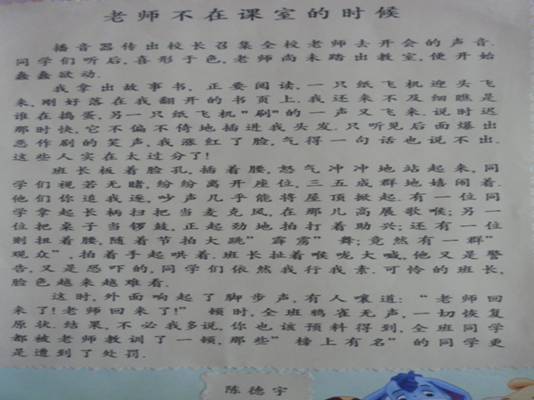 老师不在课室的时候
播音器传出校长召集全校老师去开会的声音.
同学们听后,喜形于色,老师尚未踏出教室,便开始
蠢蠢欲动.
我拿出故事书,正要阅读,一只纸飞机迎头飞
来,刚好落在我翻开的书页上.我还来不及细瞧是
谁在捣蛋,另一只纸飞机"刷"的一声又飞来.说时迟
那时快,它不偏不倚地插进我头发.只听见后面爆出
恶作剧的笑声,我涨红了脸,气得一句话也说不出.
这些人实在太过分了!
班长板着脸孔,插着腰,怒气冲冲地站起来,同
学们视若无睹,纷纷离开座位,三五成群地嬉闹着.
他们你追我逐,吵声几乎能将屋顶掀起.有一位同
学拿起长柄扫把当麦克风,在那儿高展歌喉;另一
位把桌子当锣鼓,正起劲地拍打着助兴;还有一位
则扭着腰,随着节拍大跳"霹雳"舞;竟然有一群"
观众",拍着手起哄着.班长扯着喉咙大喊,他又是警
告,又是恐吓的,同学们依然我行我素.可怜的班长,
脸色越来越难看.
这时,外面响起了脚步声,有人嚷道:"老师回
来了!老师回来了!"顿时,全班鸦雀无声,一切恢复
原状.结果,不必我多说,你也该预料得到,全班同学
都被老师教训了一顿,那些"榜上有名"的同学更
是遭到了处罚.
陈德宇